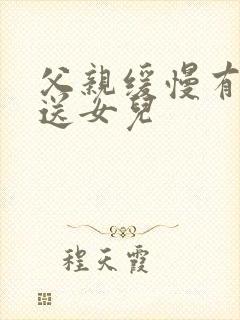 父親缓慢有
送女兒
程天霞